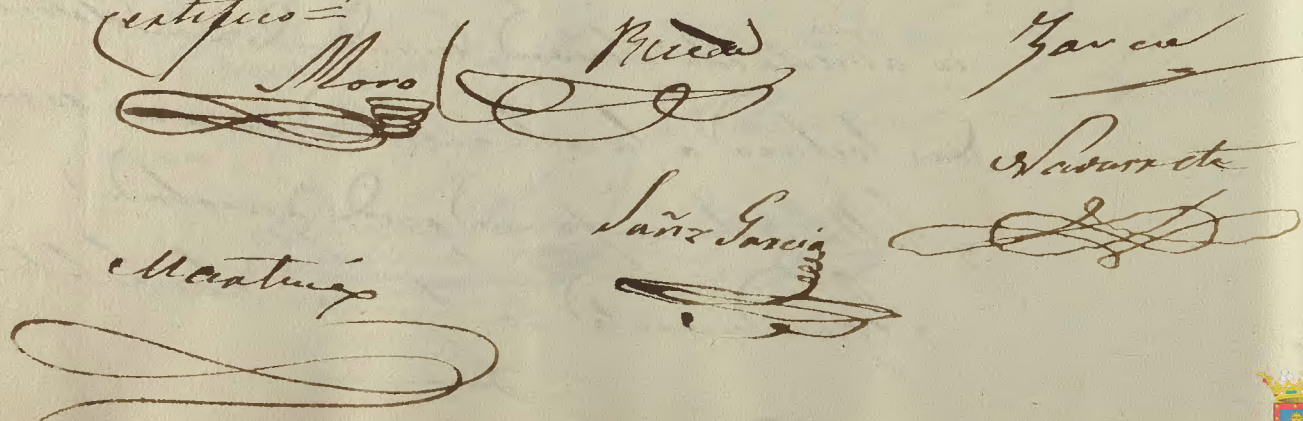 certifico=
Moro
Rueda
Navarrete
Sañz García
Martinez